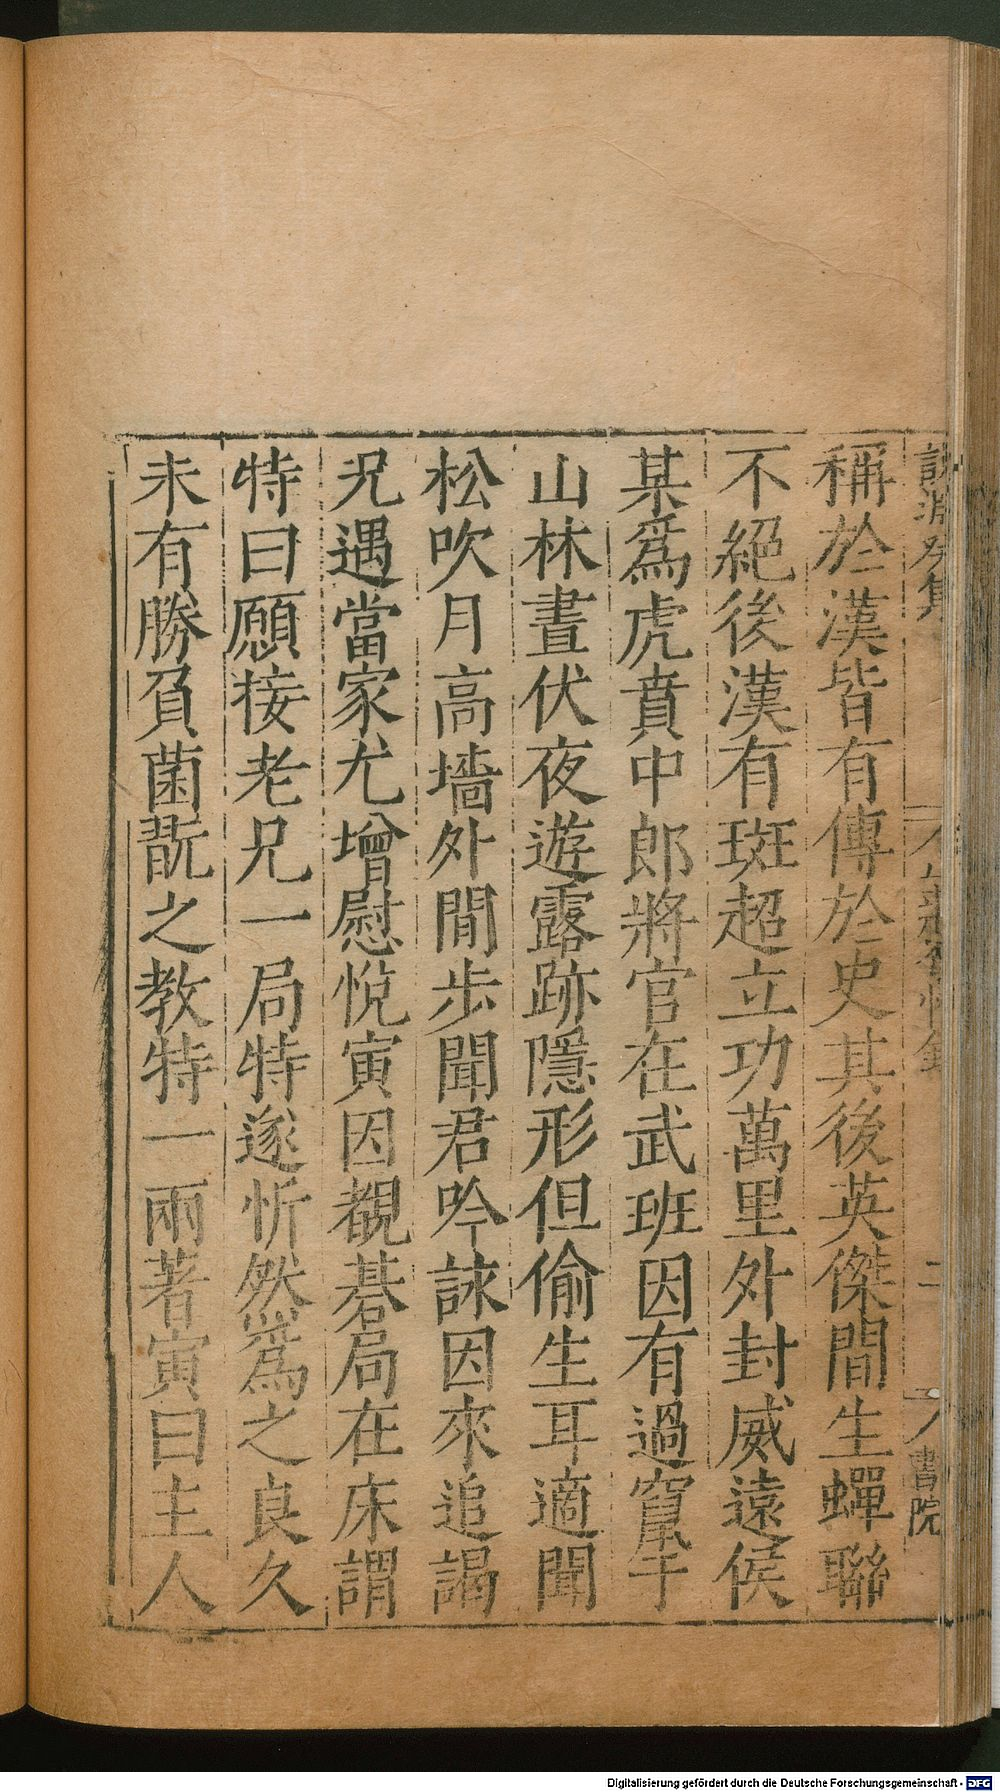 稱於漢皆有傳於史其後英傑間生蟬聯
不絕後漢有班超立功萬里外封威遠侯
某爲虎賁中郎將官在武班因有過竄于
山林晝伏夜遊露跡隱形但偷生耳適聞
松吹月高墻外閒步聞君吟詠因來追謁
况遇當家尤增慰悅寅因覩碁局在床謂
特曰願接老兄一局特遂忻然爲之良久
未有勝負菌翫之教特一兩著寅曰主人
書院
Digitalisierung gefördert durch die Deutsche Forschungsgemeinschaft - DFG